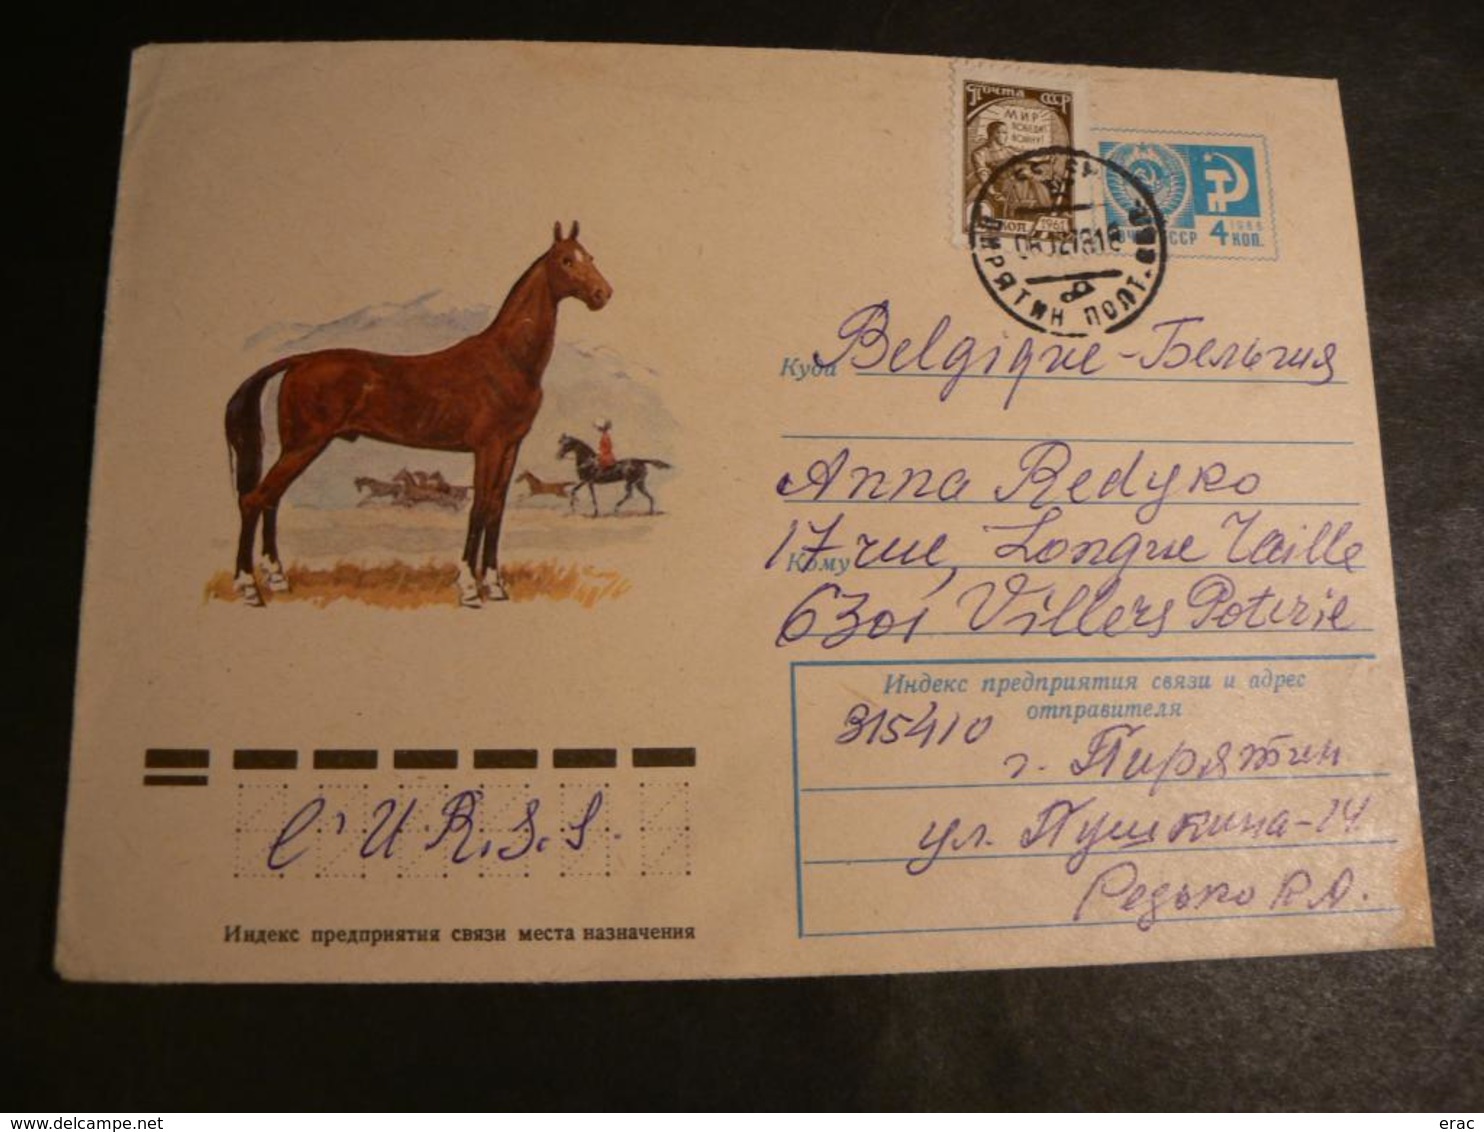 Почта СССР
МИР
ПОБЕДИТ
ВОЙНУ!
КОП 1961
1966
4 КОП.
ПИРЯТИН ПОЛТ.
Куда Belgique - Бельгия
Anna Redyko
Кому 17 rue, Longue Taille
6301 Villers Poterie
Индекс предприятия связи и адрес
отправителя
315410
г. Пирятин
ул. Пушкина-14
Редько Р.А.
l'U.R.S.S.
Индекс предприятия связи места назначения
erac